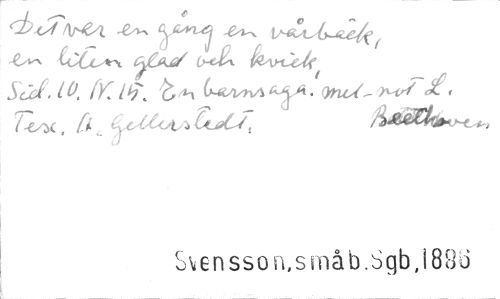 Det var en gång en vårbäck,
en liten glad och kvick,
Sid. 10. N. 15. En barnsaga. mel-not L.
Tex. A. Gellerstedt. Beethoven
Svensson, småb. Sgb, 1886